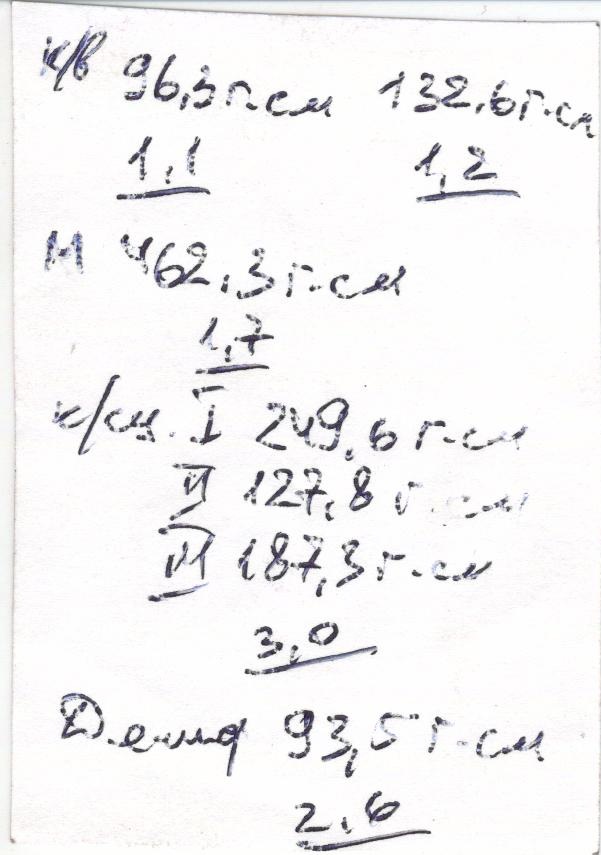 к/в 96,3 г.см 132,6 г.см
1,1 1,2
М 462,3 г.см
1,7
к/сц. I 249,6 г.см
II 127,8 г.см
III 187,3 г.см
3,0
93,5 г.см
2,6